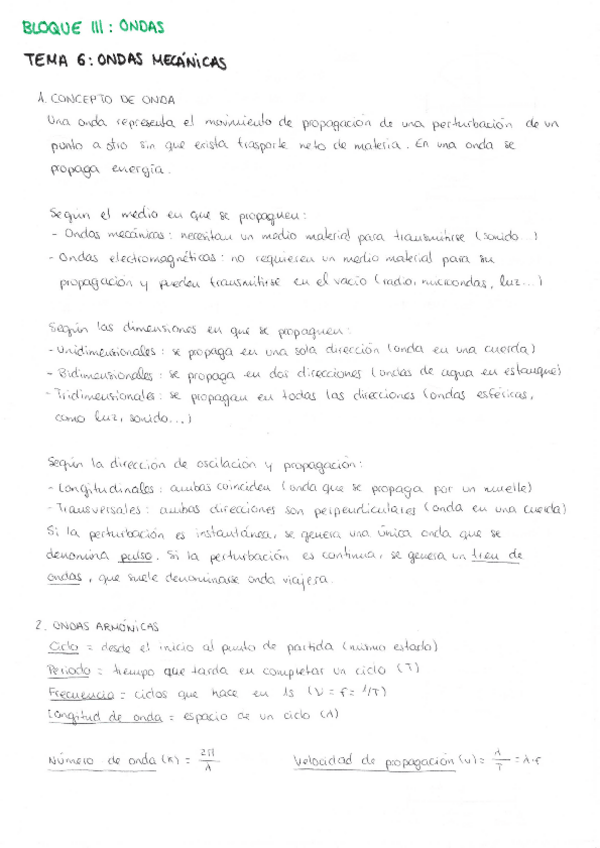 BLOQUE III: ONDAS
TEMA 6: ONDAS MECÁNICAS
1. CONCEPTO DE ONDA
Una onda representa el movimiento de propagación de una perturbación de un
punto a otro sin que exista trasporte neto de materia. En una onda se
propaga energía.
Según el medio en que se propaguen:
- Ondas mecánicas: necesitan un medio material para transmitirse (sonido...)
- Ondas electromagnéticas: no requieren un medio material para su
propagación y pueden transmitirse en el vacío (radio, microondas, luz...)
Según las dimensiones en que se propaguen:
- Unidimensionales: se propaga en una sola dirección (onda en una cuerda)
- Bidimensionales: se propaga en dos direcciones (ondas de agua en estanque)
- Tridimensionales: se propagan en todas las direcciones (ondas esféricas,
como luz, sonido...)
Según la dirección de oscilación y propagación:
- Longitudinales: ambas coinciden (onda que se propaga por un muelle)
- Transversales: ambas direcciones son perpendiculares (onda en una cuerda)
Si la perturbación es instantánea, se genera una única onda que se
denomina pulso. Si la perturbación es continua, se genera un tren de
ondas, que suele denominarse onda viajera.
2. ONDAS ARMÓNICAS
Ciclo = desde el inicio al punto de partida (mismo estado)
Periodo = tiempo que tarda en completar un ciclo (T)
Frecuencia = ciclos que hace en 1s (ν = f = 1/T)
Longitud de onda = espacio de un ciclo (λ)
Número de onda (K) = 2π/λ Velocidad de propagación (v) = λ/T = λ·f